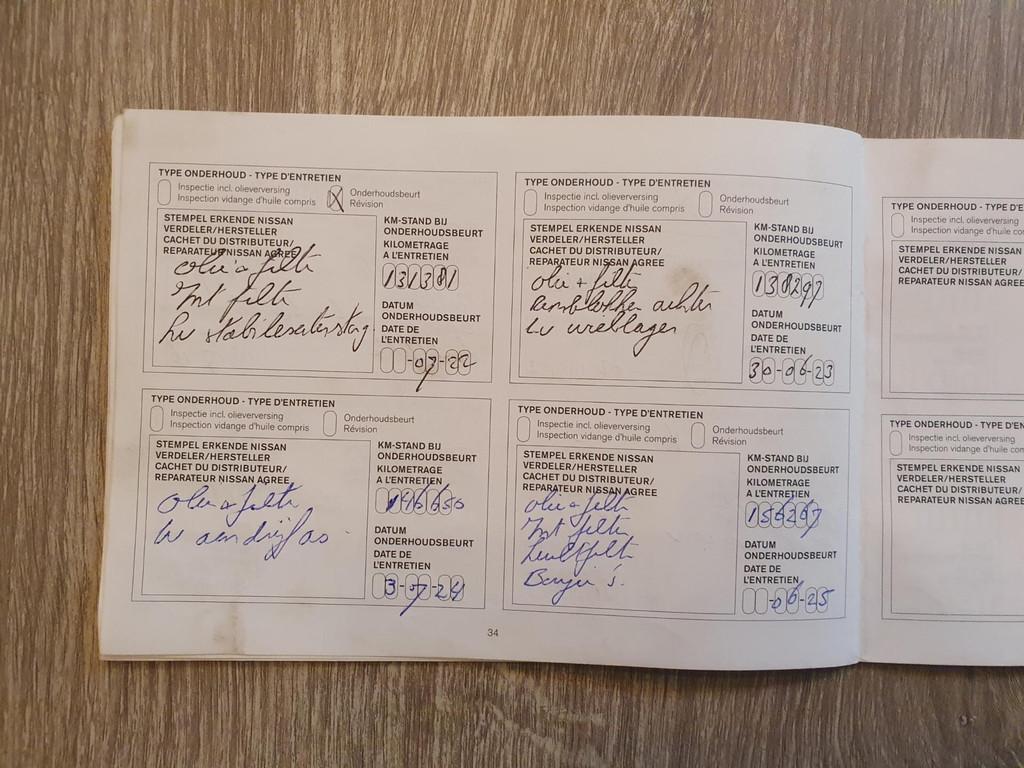 TYPE ONDERHOUD - TYPE D'ENTRETIEN
Inspectie incl. olieverversing
Inspection vidange d'huile compris
X
Onderhoudsbeurt
Révision
STEMPEL ERKENDE NISSAN
VERDELER/HERSTELLER
CACHET DU DISTRIBUTEUR/
REPARATEUR NISSAN AGREE
olie + filte
Int filte
lv stabilesatorstang
KM-STAND BIJ
ONDERHOUDSBEURT
KILOMETRAGE
A L'ENTRETIEN
131381
DATUM
ONDERHOUDSBEURT
DATE DE
L'ENTRETIEN
-07-22
TYPE ONDERHOUD - TYPE D'ENTRETIEN
Inspectie incl. olieverversing
Inspection vidange d'huile compris
Onderhoudsbeurt
Révision
STEMPEL ERKENDE NISSAN
VERDELER/HERSTELLER
CACHET DU DISTRIBUTEUR/
REPARATEUR NISSAN AGREE
olie + filte
remblokken achter
lv wiellager
KM-STAND BIJ
ONDERHOUDSBEURT
KILOMETRAGE
A L'ENTRETIEN
138297
DATUM
ONDERHOUDSBEURT
DATE DE
L'ENTRETIEN
30-06-23
TYPE ONDERHOUD - TYPE D'ENTRETIEN
Inspectie incl. olieverversing
Inspection vidange d'huile compris
Onderhoudsbeurt
Révision
STEMPEL ERKENDE NISSAN
VERDELER/HERSTELLER
CACHET DU DISTRIBUTEUR/
REPARATEUR NISSAN AGREE
olie + filte
lv aandrijfas
KM-STAND BIJ
ONDERHOUDSBEURT
KILOMETRAGE
A L'ENTRETIEN
146650
DATUM
ONDERHOUDSBEURT
DATE DE
L'ENTRETIEN
3-07-24
TYPE ONDERHOUD - TYPE D'ENTRETIEN
Inspectie incl. olieverversing
Inspection vidange d'huile compris
Onderhoudsbeurt
Révision
STEMPEL ERKENDE NISSAN
VERDELER/HERSTELLER
CACHET DU DISTRIBUTEUR/
REPARATEUR NISSAN AGREE
olie + filte
Int filte
Luchtfilte
Bougie's.
KM-STAND BIJ
ONDERHOUDSBEURT
KILOMETRAGE
A L'ENTRETIEN
156267
DATUM
ONDERHOUDSBEURT
DATE DE
L'ENTRETIEN
-06-25
34
TYPE ONDERHOUD - TYPE D'E
Inspectie incl. olieverversing
Inspection vidange d'huile com
STEMPEL ERKENDE NISSAN
VERDELER/HERSTELLER
CACHET DU DISTRIBUTEUR/
REPARATEUR NISSAN AGREE
TYPE ONDERHOUD - TYPE D'EN
Inspectie incl. olieverversing
Inspection vidange d'huile com
STEMPEL ERKENDE NISSAN
VERDELER/HERSTELLER
CACHET DU DISTRIBUTEUR/
REPARATEUR NISSAN AGREE